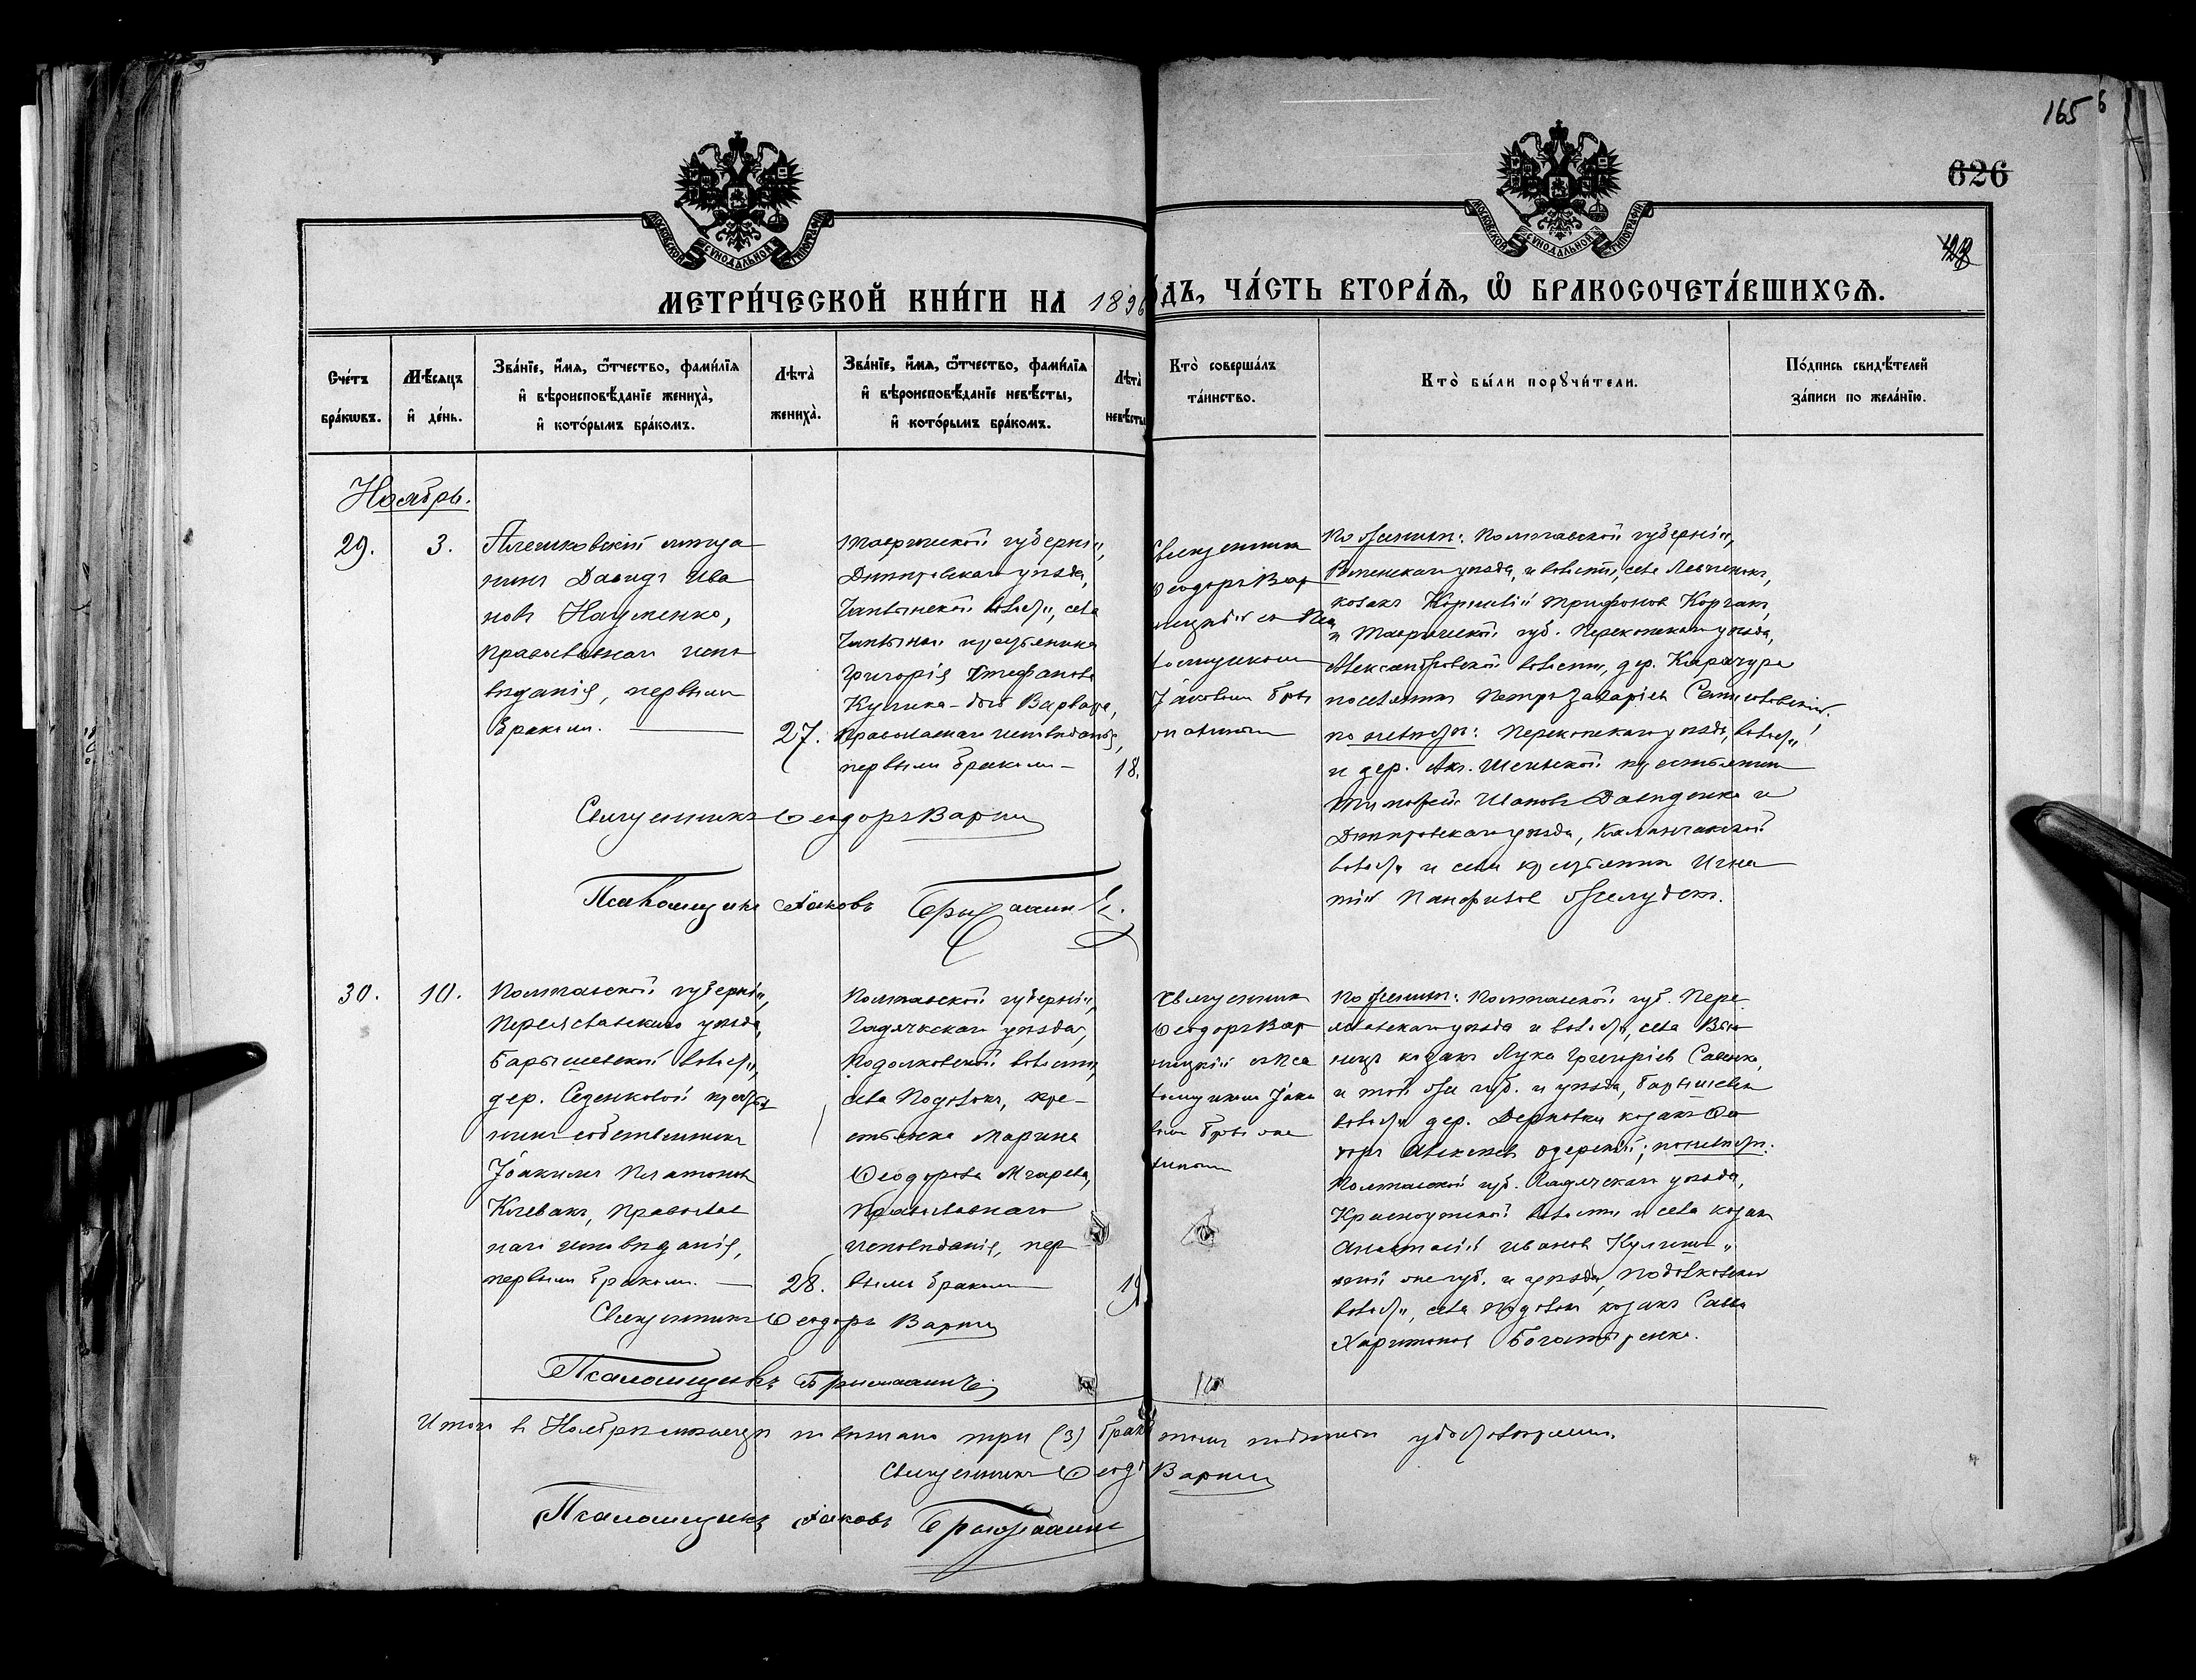 165
626
МОСКОВСКОЙ СѴНОДАЛЬНОЙ ТИПОГРАФІИ
МОСКОВСКОЙ СѴНОДАЛЬНОЙ ТИПОГРАФІИ
МЕТРИ́ЧЕСКОЙ КНИ́ГИ НА 1896
ДЪ, ЧА́СТЬ ВТОРА́Ѧ, Ѽ БРАКОСОЧЕТА́ВШИХСѦ.
Сче́тъ
бра́кѡвъ.
Мѣ́сяцъ
и҆ де́нь.
Зва́нїе, и҆́мѧ, ѻ҆́тчество, фамі́лїѧ
и҆ вѣроисповѣ́данїе жениха̀,
и҆ кото́рымъ бра́комъ.
Лѣта̀
жениха̀.
Зва́нїе, и҆́мѧ, ѻ҆́тчество, фамі́лїѧ
и҆ вѣроисповѣ́данїе невѣ́сты,
и҆ кото́рымъ бра́комъ.
Лѣта̀
невѣ́сты
Кто̀ соверша́лъ
та́инство.
Кто̀ бы́ли порꙋчи́тели.
По́дпись свидѣ́телей
за́писи по жела́нїю.
Ноябрь.
29.
3.
Алешковскій мѣща
нинъ Давидъ Ива
новъ Науменко,
православнаго испо
вѣданія, первымъ
бракомъ.
27.
Таврической губерніи,
Днѣпровскаго уѣзда,
Чаплынской волости, села
Чаплынки крестьянина
Григорія Стефанова
Кулика - дочь Варвара,
православнаго исповѣданія,
первымъ бракомъ
18.
Священникъ
Ѳеодоръ Вар
ницкій съ Пса
ломщикомъ
Іаковомъ
По женихѣ: Полтавской губерніи,
Роменскаго уѣзда, и волости, села
козакъ Корнилій Трифоновъ Коржъ,
и Таврической губ. Перекопскаго уѣзда,
Александровской волости, дер.
поселянинъ Петръ Захаріевъ
по невѣстѣ: Перекопскаго уѣзда, волости
и дер. Ак-Шеихской крестьянинъ
Тимофей Давиденко и
Днѣпровскаго уѣзда, Каланчакской
волости и села крестьянинъ Игна
тій Панфиловъ
Священникъ Ѳеодоръ Варниц
Псаломщикъ Іаковъ
30.
10.
Полтавской губерніи,
Переяславскаго уѣзда,
Барышевской волости,
дер. Селенковой крестья
нинъ собственникъ
Іоакимъ Платоновъ
Клевакъ, православ
наго исповѣданія,
первымъ бракомъ.
28.
Полтавской губерніи,
Гадячскаго уѣзда,
Подолковской волости,
села Подолокъ, кре-
стьянка Марина
Ѳеодорова
православнаго
исповѣданія, пер
вымъ бракомъ
19
Священникъ
Ѳеодоръ Вар
ницкій съ Пса
ломщикомъ Іако
вомъ
По женихѣ: Полтавской губ. Пере
яславскаго уѣзда и волости, села
козакъ Лука Григоріевъ Савенко,
и той же губ. и уѣзда, Барышевск
волости дер. Дерновки козакъ Ѳео
доръ Алексіевъ; по невѣстѣ:
Полтавской губ. Гадячскаго уѣзда,
Краснолуцкой волости и села козакъ
Анастасій Ивановъ
той же губ. и уѣзда, Подолковской
волости, села Подолокъ козакъ Савва
Харитоновъ Богатыренко.
Священникъ Ѳеодоръ Варниц
Псаломщикъ
Итого въ Ноябрѣ мѣсяцѣ повѣнчано три (3) брака
удостовѣряемъ.
Священникъ Ѳеод Варниц
Псаломщикъ Іаковъ